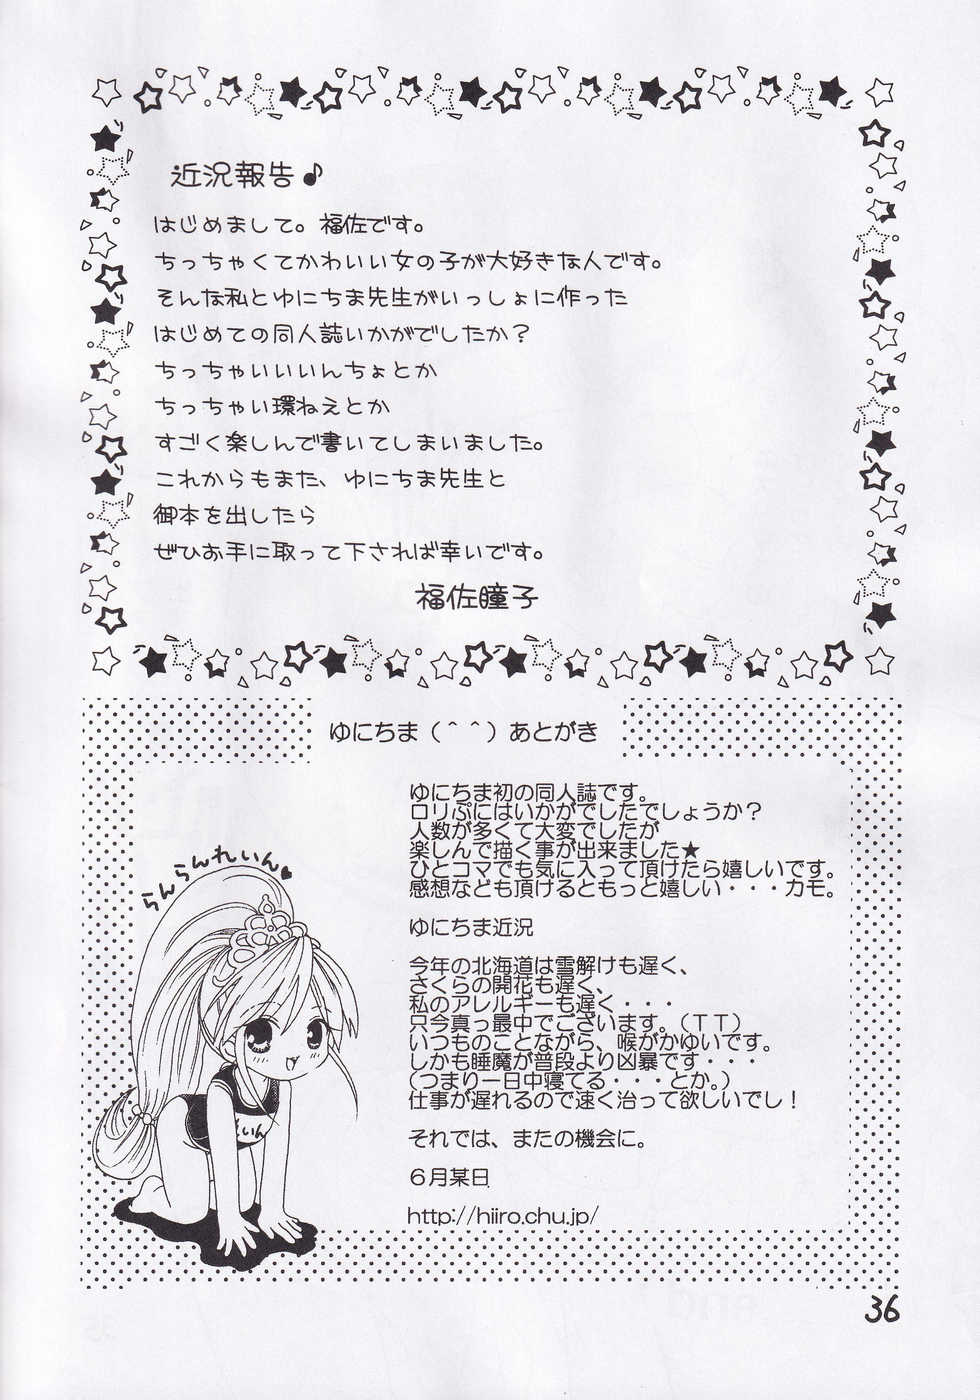 近況報告♪
はじめまして。福佐です。
ちっちゃくてかわいい女の子が大好きな人です。
そんな私とゆにちま先生がいっしょに作った
はじめての同人誌いかがでしたか?
ちっちゃいいいんちょとか
ちっちゃい環ねえとか
すごく楽しんで書いてしまいました。
これからもまた、ゆにちま先生と
御本を出したら
ぜひお手に取って下されば幸いです。
福佐瞳子
ゆにちま(^ ^)あとがき
ゆにちま初の同人誌です。
ロリぷにはいかがでしたでしょうか?
人数が多くて大変でしたが
楽しんで描く事が出来ました★
ひとコマでも気に入って頂けたら嬉しいです。
感想なども頂けるともっと嬉しい・・・カモ。
ゆにちま近況
今年の北海道は雪解けも遅く、
さくらの開花も遅く、
私のアレルギーも遅く・・・
只今真っ最中でございます。(TT)
いつものことながら、喉がかゆいです。
しかも睡魔が普段より凶暴です・・・
(つまり一日中寝てる・・・とか。)
仕事が遅れるので速く治って欲しいでし!
それでは、またの機会に。
6月某日
http://hiiro.chu.jp/
らんらんれいん♥
れいん
36